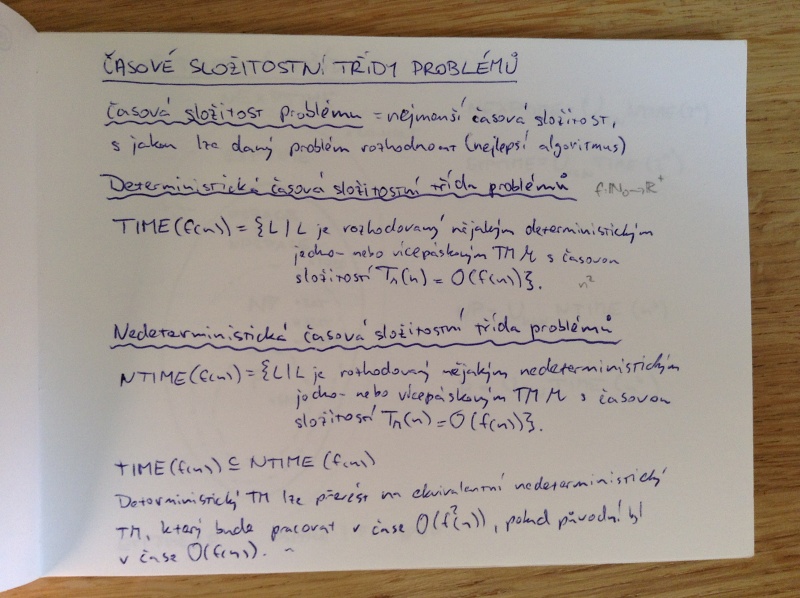 ČASOVÉ SLOŽITOSTNÍ TŘÍDY PROBLÉMŮ
časová složitost problému = nejmenší časová složitost,
s jakou lze daný problém rozhodnout (nejlepší algoritmus)
Deterministická časová složitostní třída problémů f:ℕ₀→ℝ⁺
TIME(f(n)) = {L | L je rozhodovaný nějakým deterministickým
jedno- nebo vícepáskovým TM M s časovou
složitostí Tₘ(n) = O(f(n))}. n²
Nedeterministická časová složitostní třída problémů
NTIME(f(n)) = {L | L je rozhodovaný nějakým nedeterministickým
jedno- nebo vícepáskovým TM M s časovou
složitostí Tₘ(n) = O(f(n))}.
TIME(f(n)) ⊆ NTIME(f(n))
Deterministický TM lze převést na ekvivalentní nedeterministický
TM, který bude pracovat v čase O(f²(n)), pokud původní byl
v čase O(f(n)).